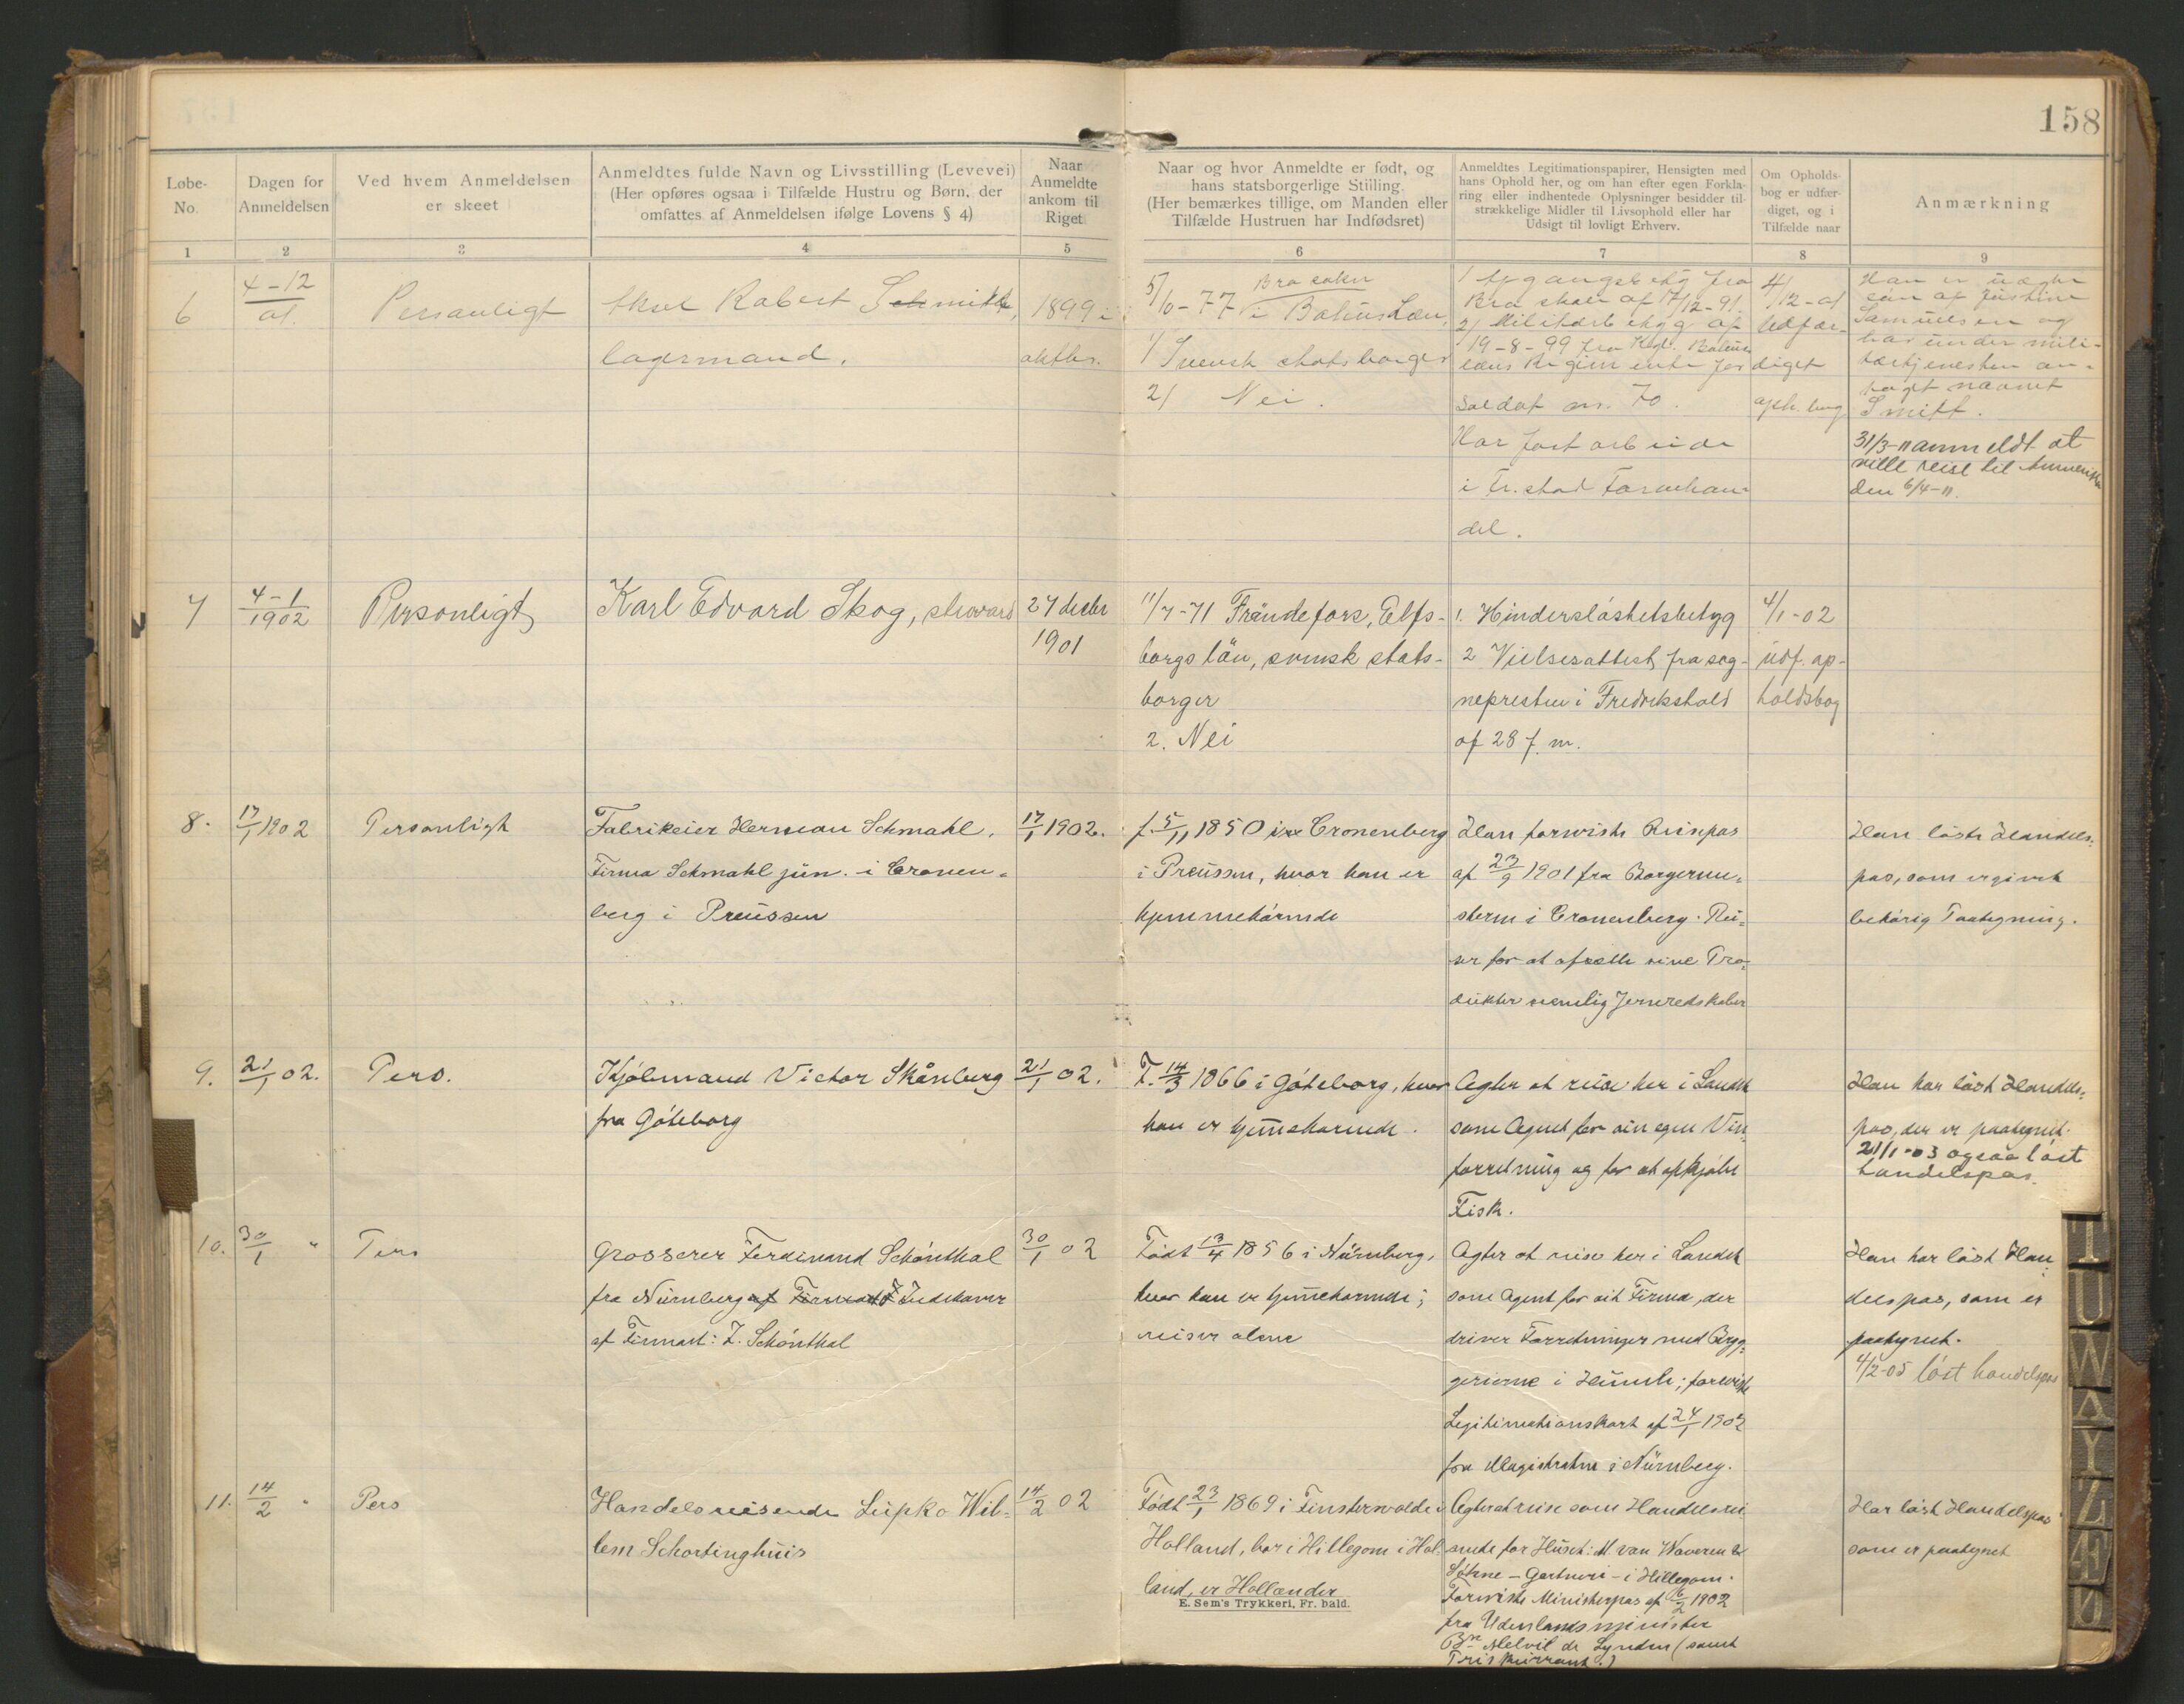 158
Løbe-
No.
Dagen for
Anmeldelsen
Ved hvem Anmeldelsen
er skeet
Anmeldtes fulde Navn og Livsstilling (Levevei)
(Her opføres ogsaa i Tilfælde Hustru og Børn, der
omfattes af Anmeldelsen ifølge Lovens § 4)
Naar
Anmeldte
ankom til
Riget
Naar og hvor Anmeldte er født, og
hans statsborgerlige Stilling.
(Her bemærkes tillige, om Manden eller i
Tilfælde Hustruen har Indfødsret)
Anmeldtes Legitimationspapirer, Hensigten med
hans Ophold her, og om han efter egen Forkla-
ring eller indhentede Oplysninger besidder til-
strækkelige Midler til Livsophold eller har
Udsigt til lovligt Erhverv.
Om Opholds-
bog er udfær-
diget, og i
Tilfælde naar
Anmærkning
1 2 3 4 5 6 7 8 9
6
4-12
01.
Personligt
Aksel Robert Schmidt,
lagermand.
1899 i
oktbr.
5/10-77 i Bohus Len,
Bro sokn
1) Svensk statsborger
2) Nei.
1 Afgangsbetyg fra
Bro skole af 17/12-91.
2) Militærbetyg af
19-8-99 fra Kgl. Bohus
læns Regimente for
Soldat nr. 70.
Har fast arbeide
i Fr.stad Farvehan-
del.
4/
12-01
Udfær-
diget
oph. bog
Han er uægte
søn af Justine
Samuelsen og
har under mili-
tærtjenesten an-
taget navnet
Smitt.
31/3-11 anmeldt at
ville reise til Amerika
den 6/4-11.
7
4-1
1902
Personligt
Karl Edvard Skog, stuvard
27 decbr
1901
11/7-71 Frändefors, Elfs-
borgs län, svensk stats-
borger
2. Nei
1. Hinderslöshetsbetyg
2 Vielsesattest fra sog-
nepresten i Fredrikshald
af 28 f. m.
4/1-02
udf. op-
holdsbog
8.
17/1 1902
Personligh
Fabrikeier Herman Schmahl,
Firma Schmahl jun. i Cronen-
berg i Preussen
17/1 1902.
f. 5/11 1850 i Cronenberg
i Preussen, hvor han er
hjemmehørende
Han forviste Reisepas
af 23/9 1901 fra Borgerme-
steren i Cronenberg. Rei-
ser for at afsætte sine Pro-
dukter nemlig Jernredskaber
Han løste Handels-
pas, som er givet
behørig Paategning.
9.
21/1 02.
Pers.
Kjøbmand Victor Skånberg
fra Göteborg
21/1 02.
F. 14/3 1866 i Göteborg, hvor
han er hjemehørende.
Agter at reise her i Landet
som Agent for sin egen Vin-
forretning og for at opkjøbe
Fisk.
Han har løst Handels-
pas, der er paategnet.
21/1-03 ogsaa løst
handelspas.
10.
30/1 "
Pers
Grosserer Ferdinand Schönthal
fra Nürnberg af Firmaet Indehaver
af Firmaet: Z. Schönthal
30/1 02
Født 13/4 1856 i Nürnberg,
hvor han er hjemehørende;
reiser alene
Agter at reise her i Landet
som Agent for sit Firma, der
driver Forretninger med Bryg-
gerierne i Humle; foreviste
Legitimationskort af 24/1 1902
fra Magistraten i Nürnberg.
Han har løst Han-
delspas, som er
paategnet.
4/2-05 løst handelspas
11.
14/2 "
Pers
Handelsreisende Luipko Wil-
lem Schortinghuis
14/2 02
Født 23/1 1869 i Finsterwolde i
Holland, bor i Hillegom i Hol-
land, er Hollænder
E. Sem's Trykkeri, Fr. hald.
Agter at reise som Handelsrei-
sende for Huset: M van Waveren &
Söhne - Gartneri - i Hillegom.
Foreviste Ministerpas af 6/2 1902
fra Udenlandsminister
Bn Melvil de Lynden (samt
Priskurrant.)
Har løst Handelspas
som er paategnet
I
U
W
Y
Z
Æ
Ø